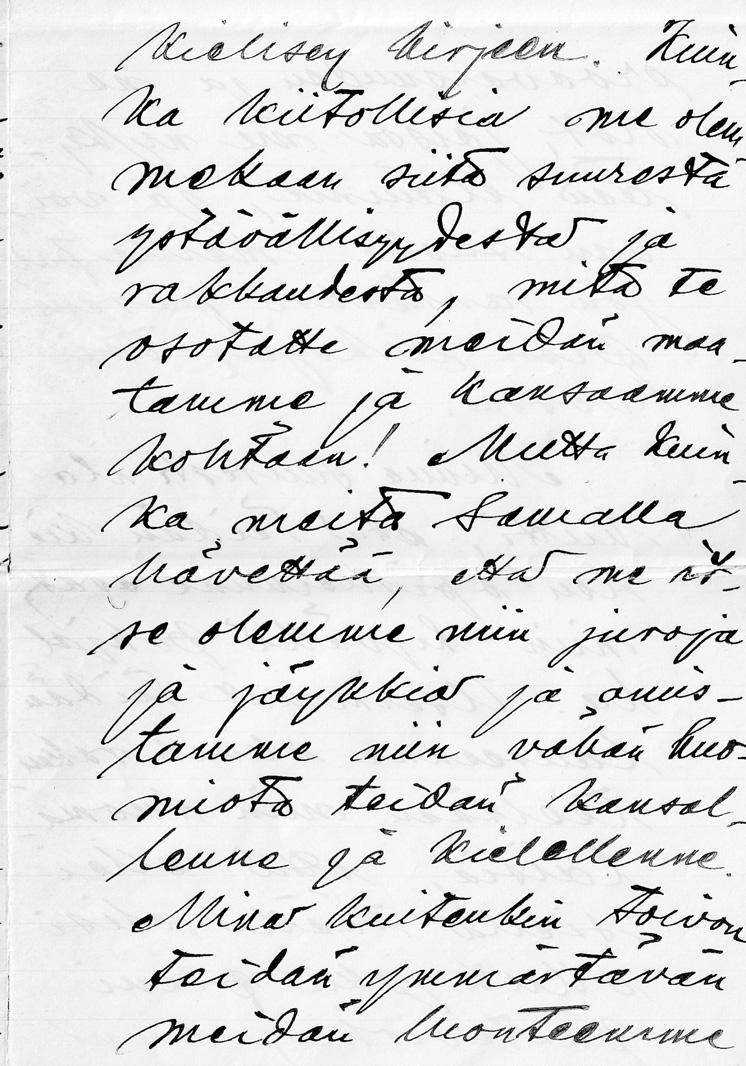 kielisen kirjeen. Kuin-
ka kiitollisia me olem
mekaan siitä suuresta
ystävällisyydestä ja
rakkaudesta, mitä te
osotatte meidän maa-
tamme ja kansaamme
kohtaan! Mutta kuin-
ka meitä samalla
hävettää, että me it-
se olemme niin juroja
ja jäykkiä ja omis-
tamme niin vähän huo-
miota teidän kansal-
lenne ja kielellenne.
Minä kuitenkin toivon
teidän ymmärtävän
meidän luonteemme